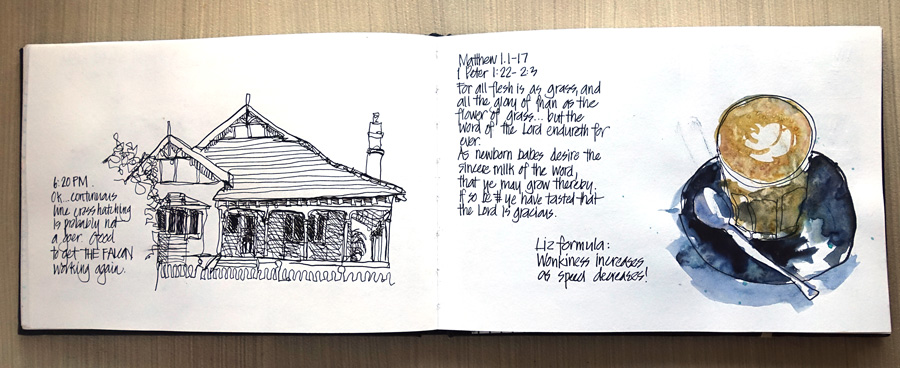 6:20 PM.
Ok... continuous
line crosshatching
is probably not
a goer. Good
to get THE FALCON
working again.
Matthew 1.1-17
1 Peter 1:22-2:3
For all flesh is as grass, and
all the glory of man as the
flower of grass... but the
word of the Lord endureth for
ever.
As newborn babes desire the
sincere milk of the word,
that ye may grow thereby.
If so be ye have tasted that
the Lord is gracious.
Liz formula:
Wonkiness increases
as speed decreases!